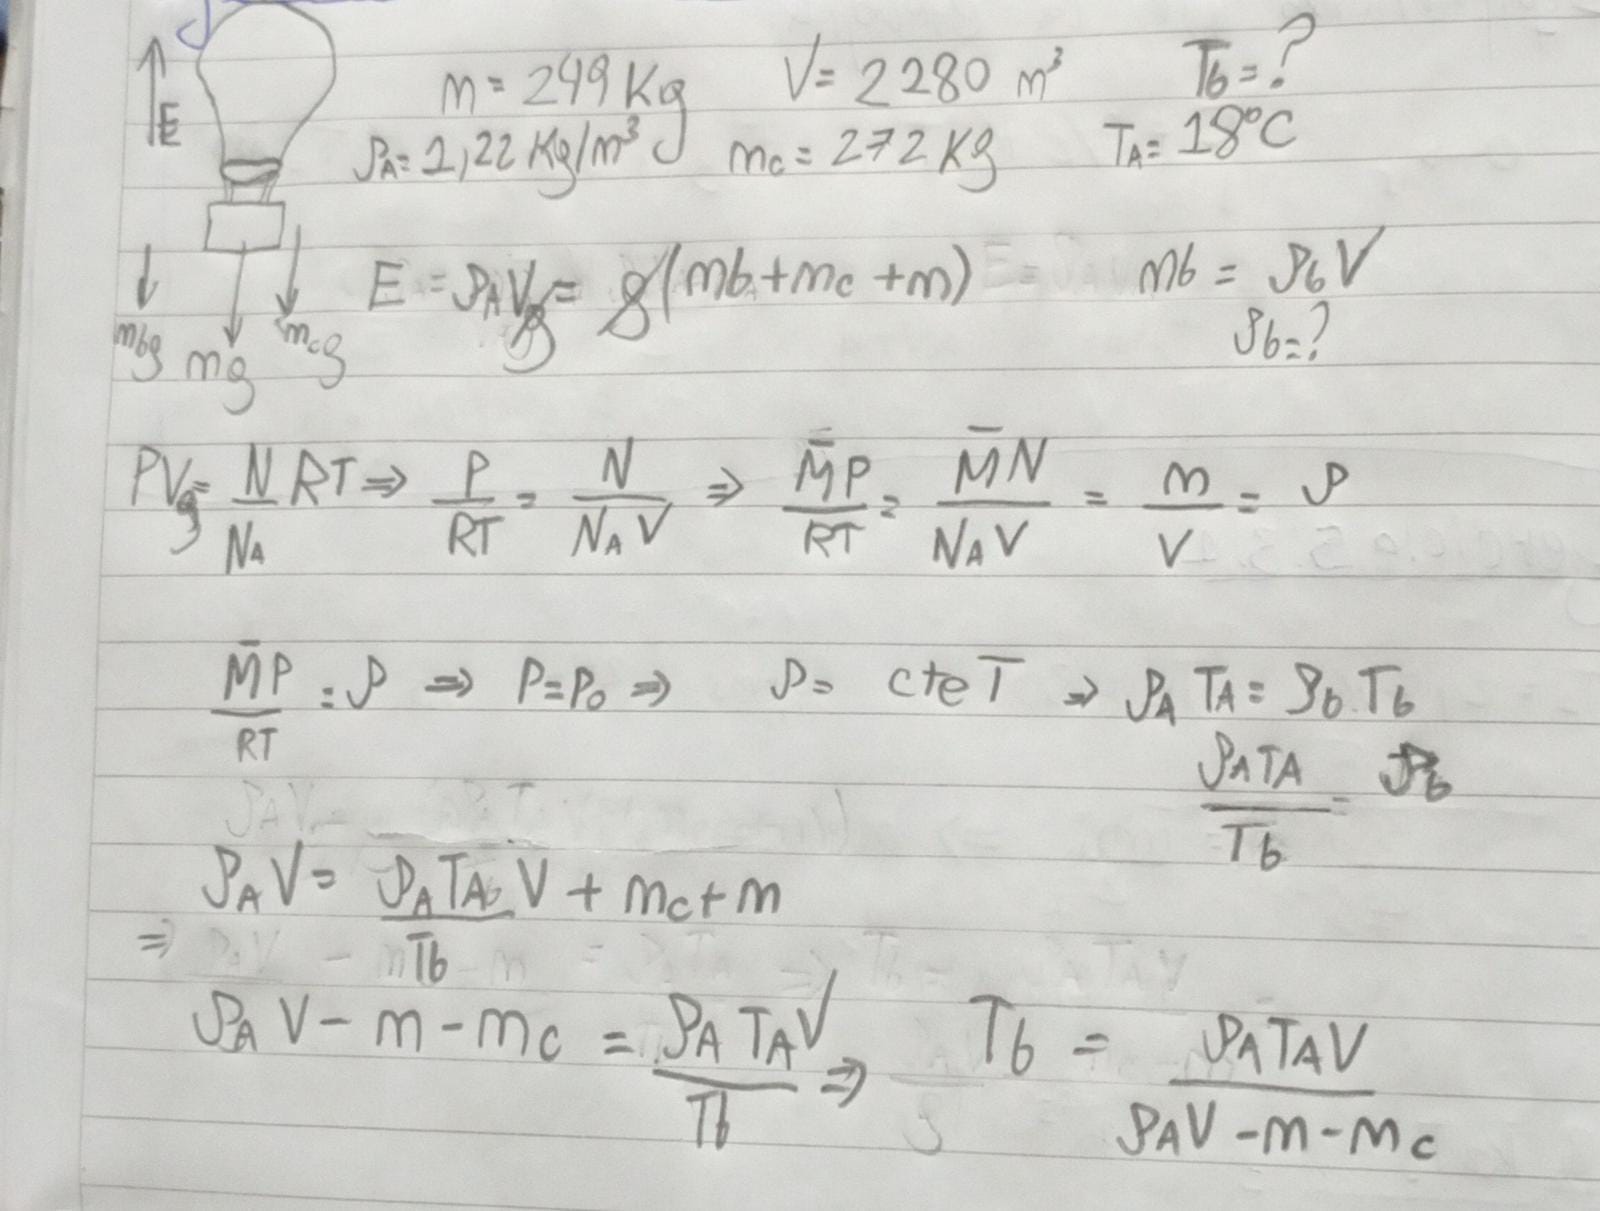 m = 249 Kg V = 2280 m³ Tb = ?
E ρA = 1,22 Kg/m³ mc = 272 Kg TA = 18°C
E = ρA Vg = g(mb + mc + m) mb = ρb V
mbg mg mcg ρb = ?
PVg = N/NA RT ⇒ P/RT = N/(NA V) ⇒ M̄P/RT = M̄N/(NA V) = m/V = ρ
M̄P/RT = ρ ⇒ P = P₀ ⇒ ρ = cte T ⇒ ρA TA = ρb Tb
ρA TA/Tb = ρb
ρA V = ρA TA V/Tb + mc + m
⇒
ρA V - m - mc = ρA TA V/Tb ⇒ Tb = ρA TA V/(ρA V - m - mc)